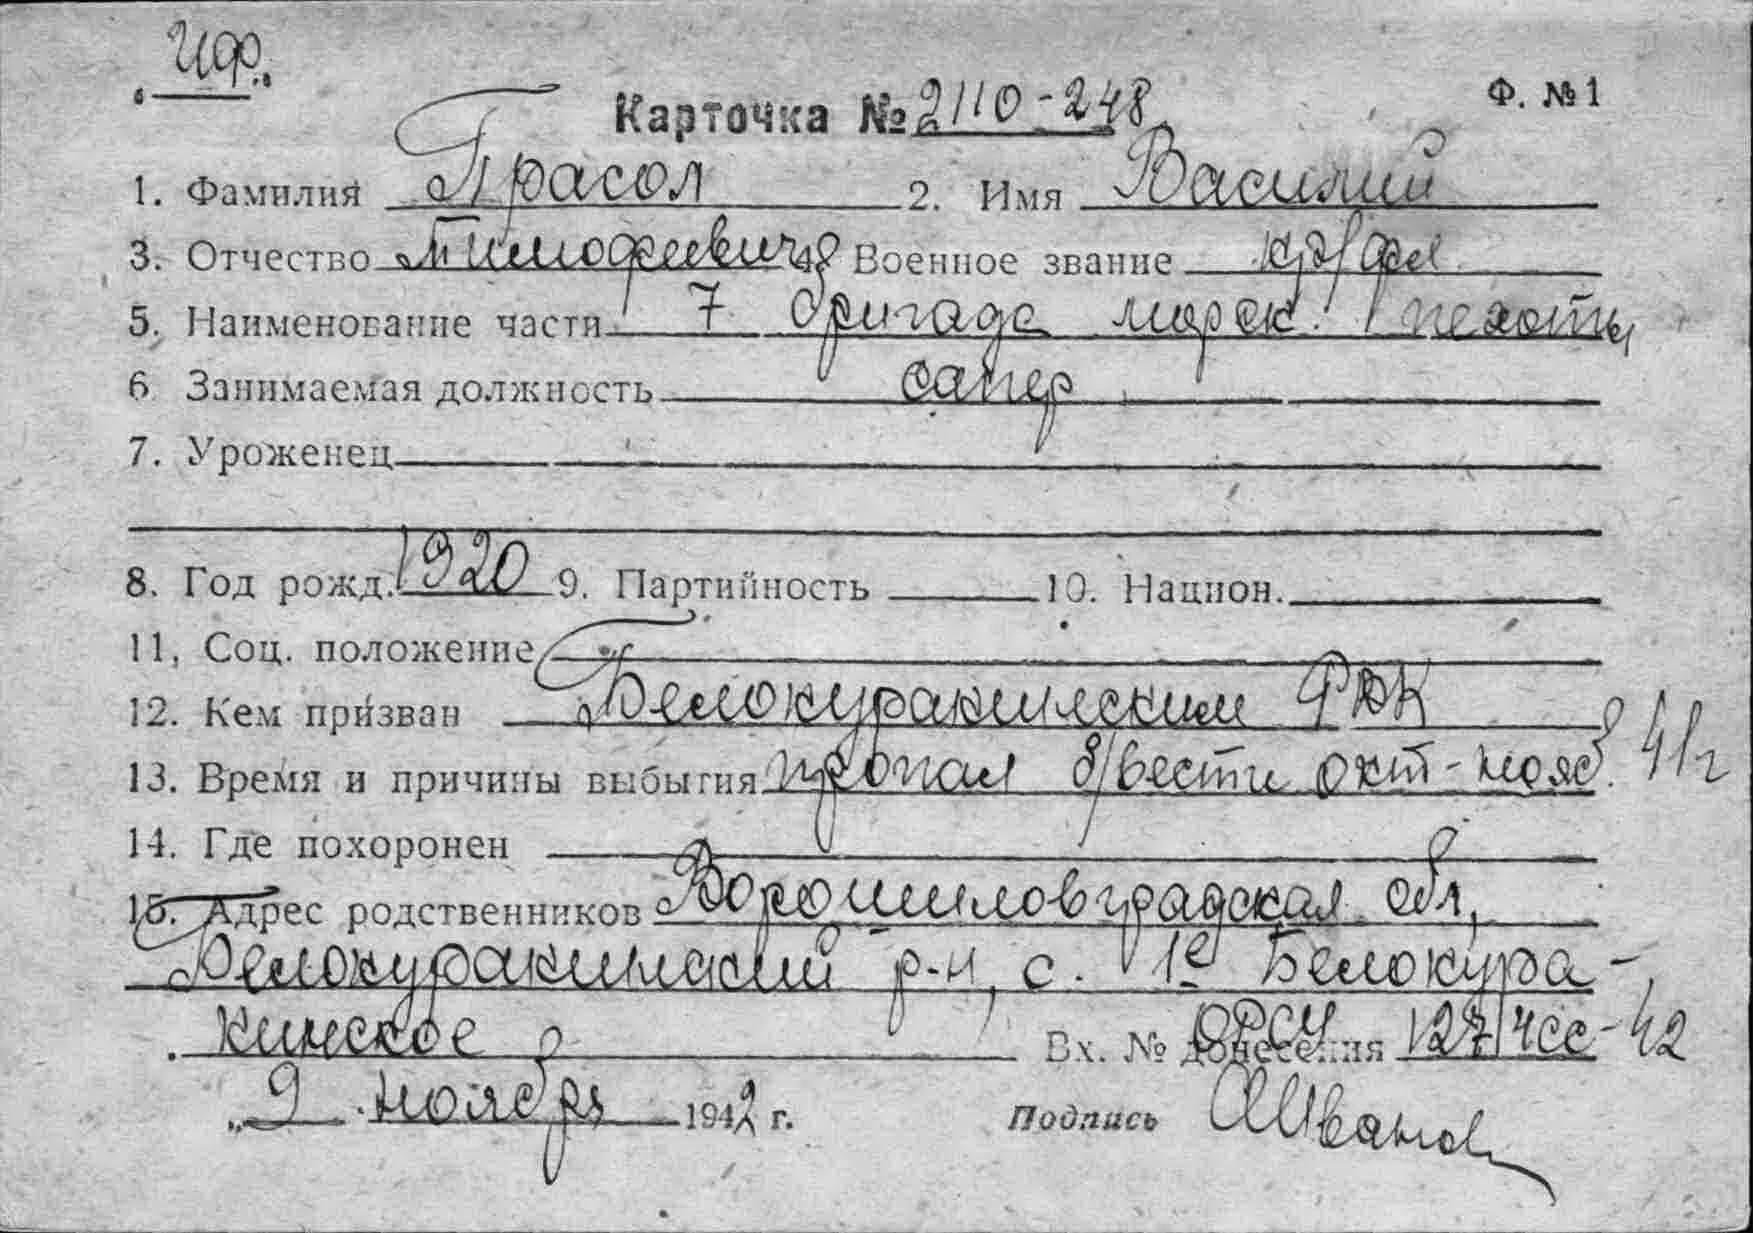 Иф.
Карточка № 2110-248
Ф. №1
1. Фамилия Прасол 2. Имя Василий
3. Отчество Тимофеевич 4. Военное звание кр/фл
5. Наименование части 7 бригада морск. пехоты
6 Занимаемая должность сапер
7. Уроженец
8. Год рожд. 1920 9. Партийность 10. Национ.
11, Соц. положение
12. Кем призван Белокуракинским РВК
13. Время и причины выбытия пропал б/вести окт-нояб. 41г
14. Где похоронен
15. Адрес родственников Ворошиловградская обл,
Белокуракинский р-н, с. 1е Белокура-
кинское Вх. № донесения 127/4сс-42
„9 ноября 1942 г. Подпись АИванов